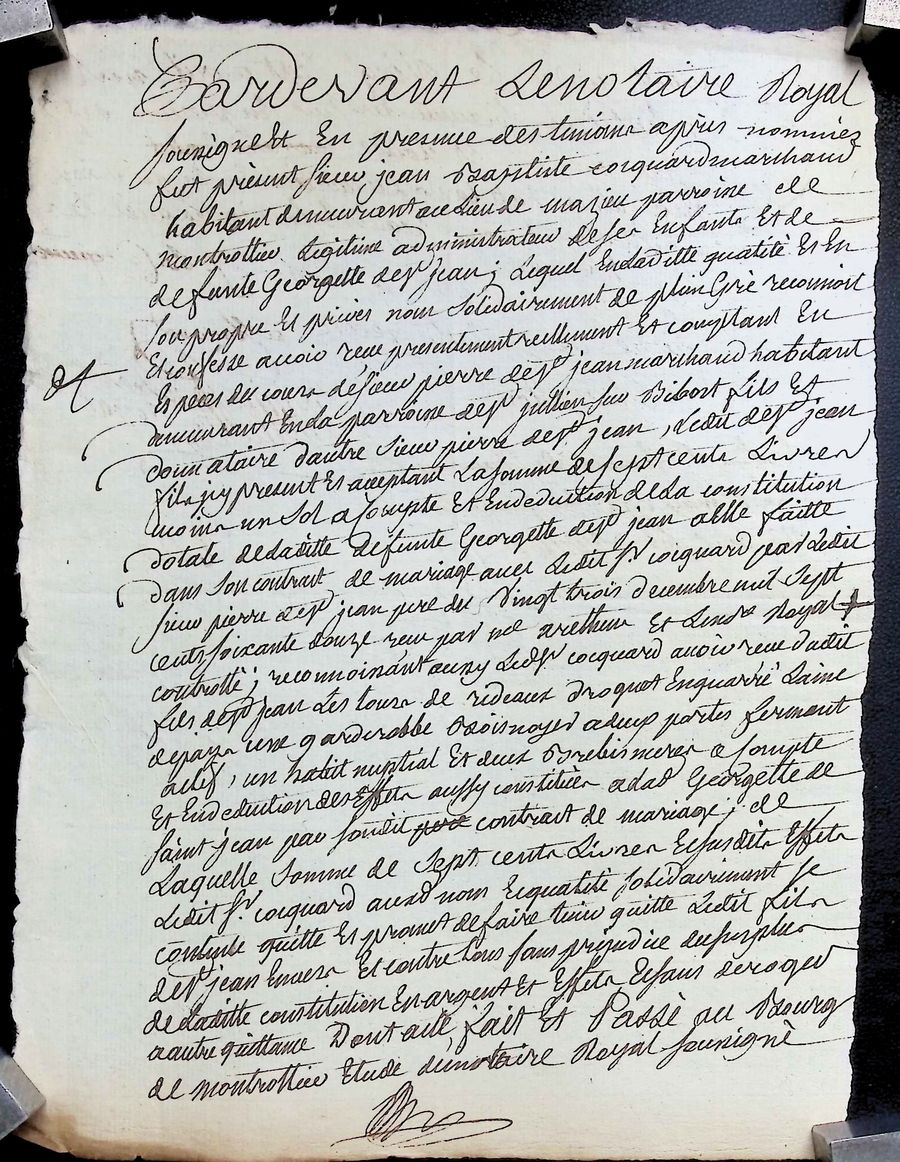 Pardevant Lenotaire Royal
soussignett En presence des temoins apres nommés
fut présent sieur jean Baptiste cocquard marchand
habitant demeurant au Lieu de mazieu parroisse de
montrottier Legitime administrateur de ses Enfants Et de
defunte Georgette de st jean; Lequel En Laditte qualité Et En
son propre Et privés nom solidairement de plein Gré reconnoit
Et confesse avoir reçu presentement reellement Et comptant En
Especes des cours de sieur pierre de st jean marchand habitant
demeurant En La parroisse de st jullien sur Bibost fils Et
donnataire d'autre sieur pierre de st jean, Ledit de st jean
fils icy present Et acceptant La somme de sept cents Livres
moins un sol a compte Et En deduction de La constitution
dotale de laditte defunte Georgette de st jean a Elle faitte
dans son contrat de mariage avec Ledit sr. cocquard par Ledit
sieur pierre de st jean pere du vingt trois decembre mil sept
cents soixante douze reçu par me arethuse Et Lnore Royal +
controllé; reconnoissant aussy Ledsr cocquard avoir reçu dudit
fils de st jean Les tours de rideaux droguet En quarré Laine
de païs une garderobbe Bois noyer a deux portes fermant
a clef, un habit nuptial Et deux Brebis meres a compte
Et En deduction des Effets aussy constitués a lad Georgette de
saint jean par sondit contrat de mariage; de
Laquelle somme de sept cents Livres Et susdits Effets
Ledit sr. cocquard auxd noms Et qualité solidairement se
contente quitte Et promet de faire tenir quitte Ledit fils
de st jean Envers Et contre tous sans prejudice du surplus
de Laditte constitution En argent Et Effets Et sans deroger
a autre quittance Dont acte, fait Et Passé au Bourg
de montrottier Etude du notaire Royal soussigné